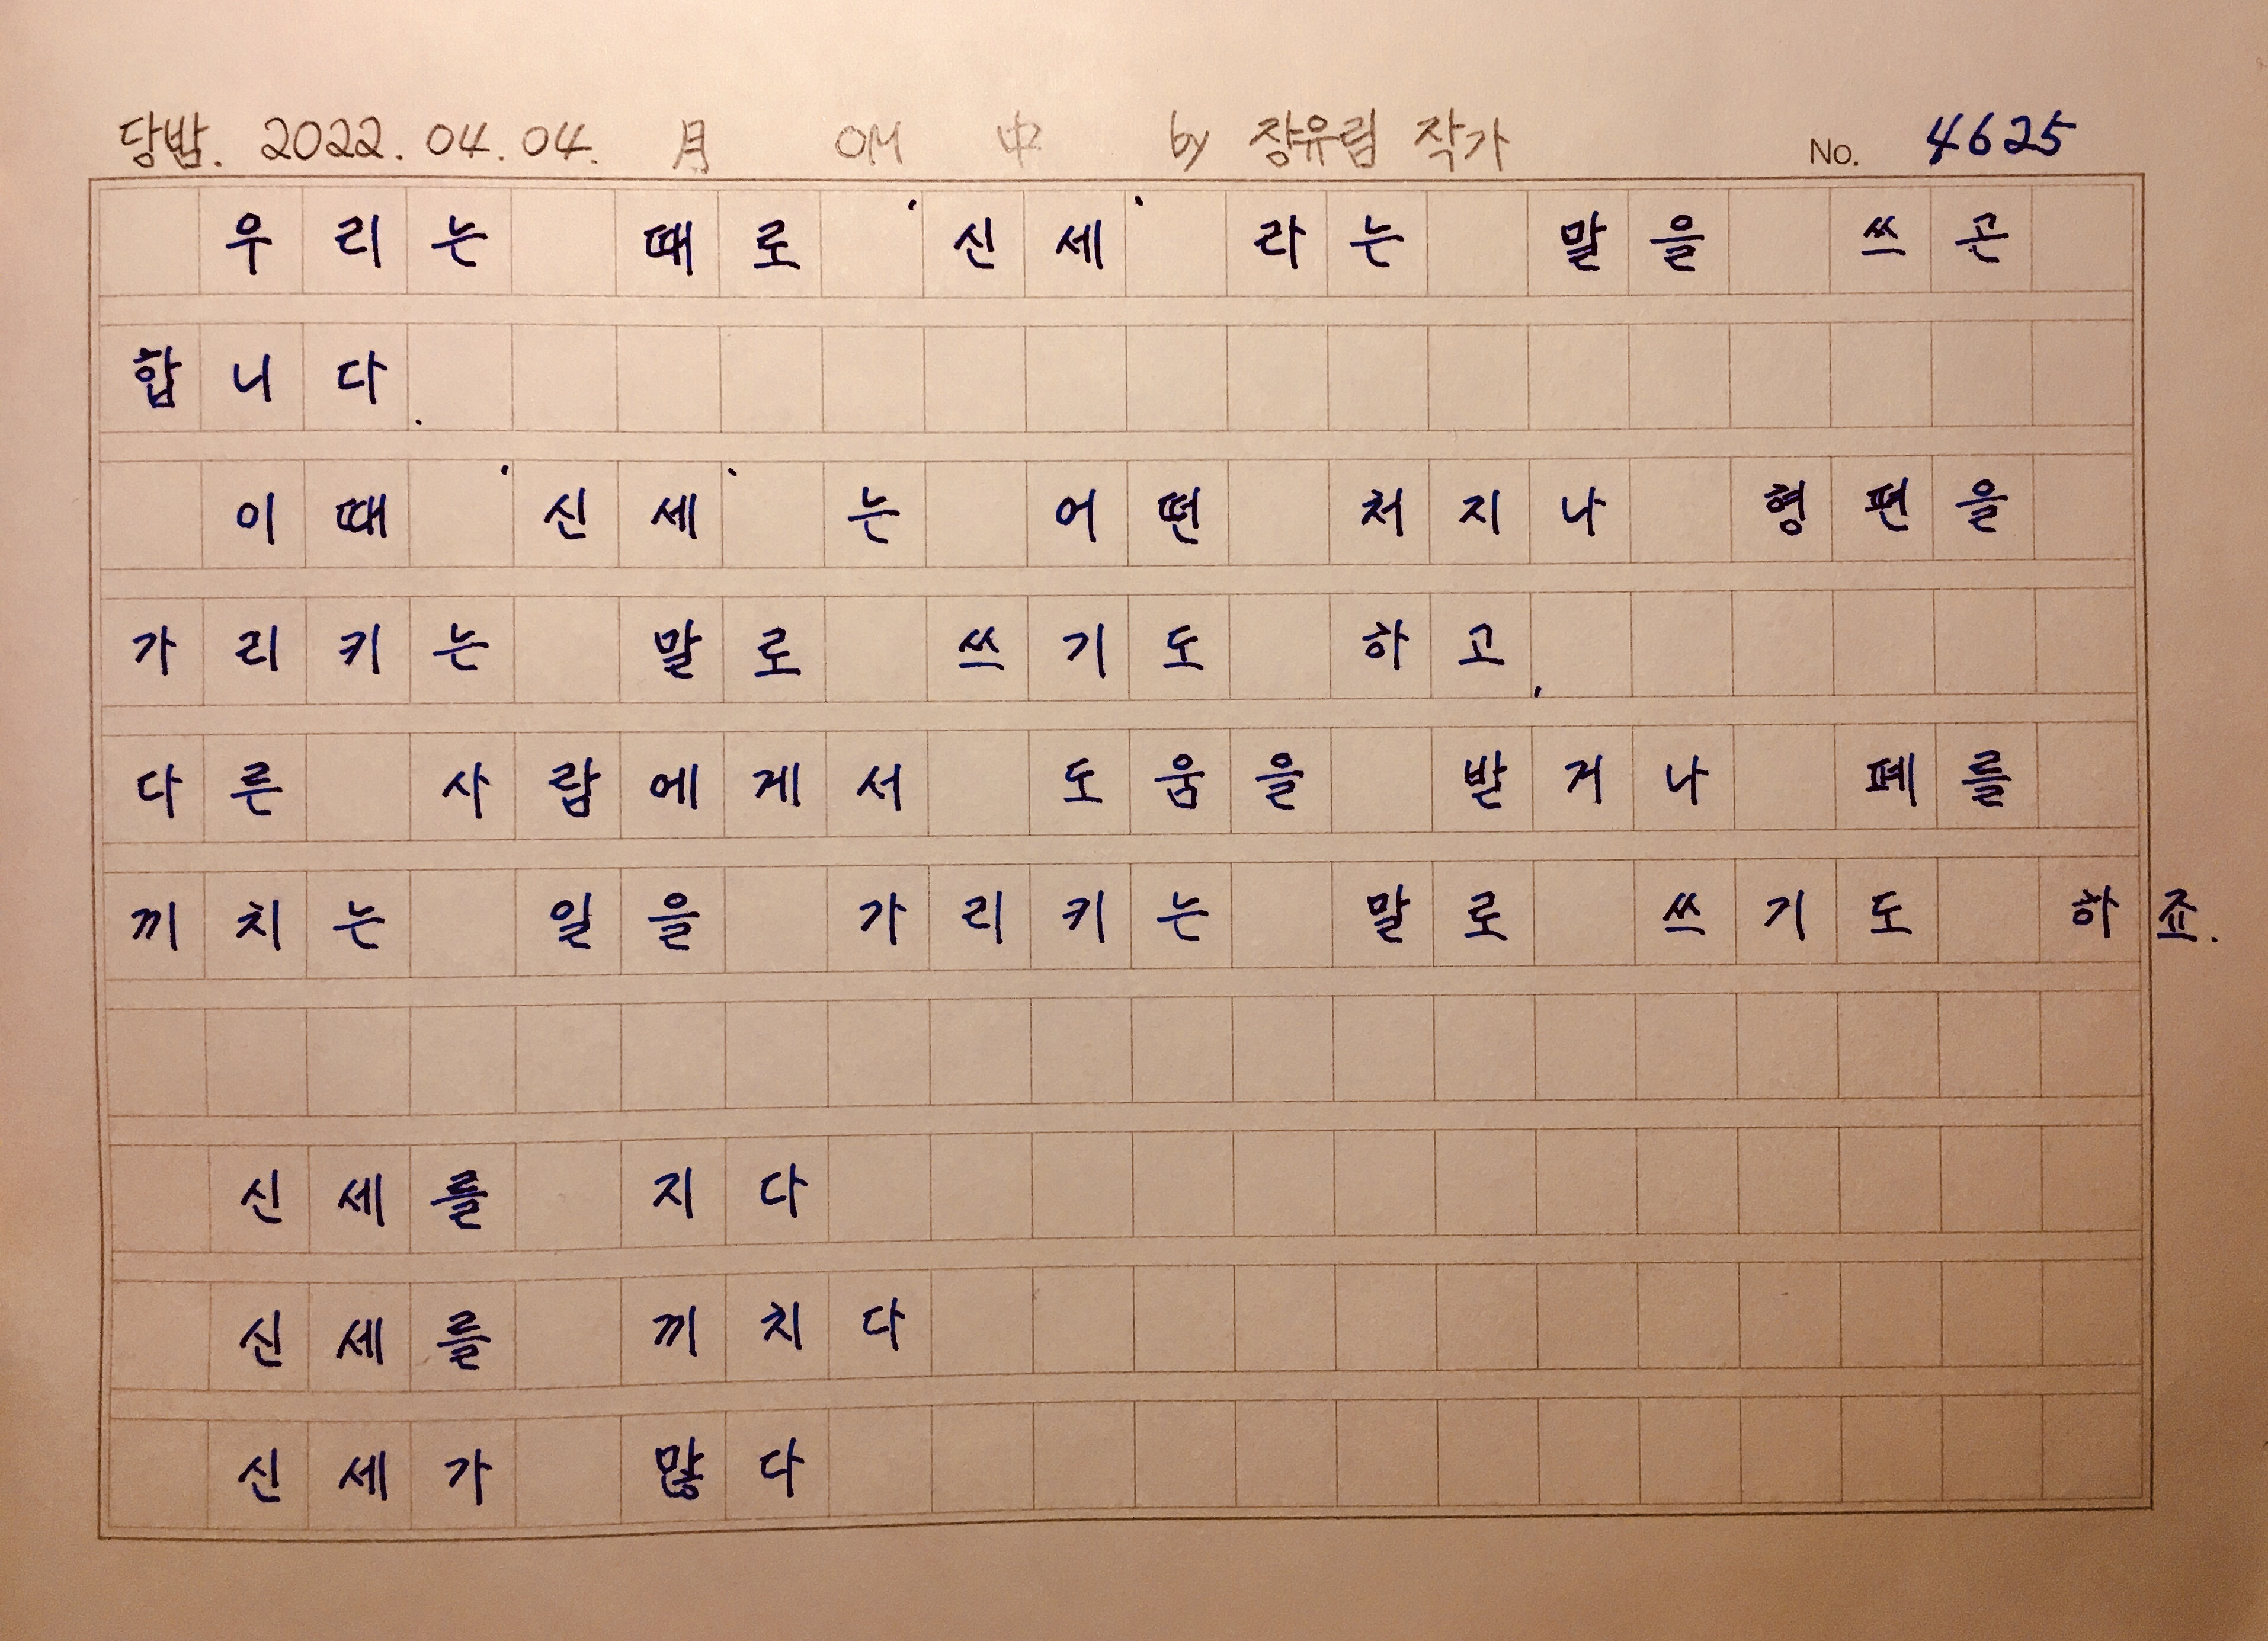 당밤. 2022. 04. 04. 月 OM 中 by 장유림 작가 No. 4625
우리는 때로 '신세'라는 말을 쓰곤
합니다.
이때 '신세'는 어떤 처지나 형편을
가리키는 말로 쓰기도 하고,
다른 사람에게서 도움을 받거나 폐를
끼치는 일을 가리키는 말로 쓰기도 하죠.
신세를 지다
신세를 끼치다
신세가 많다